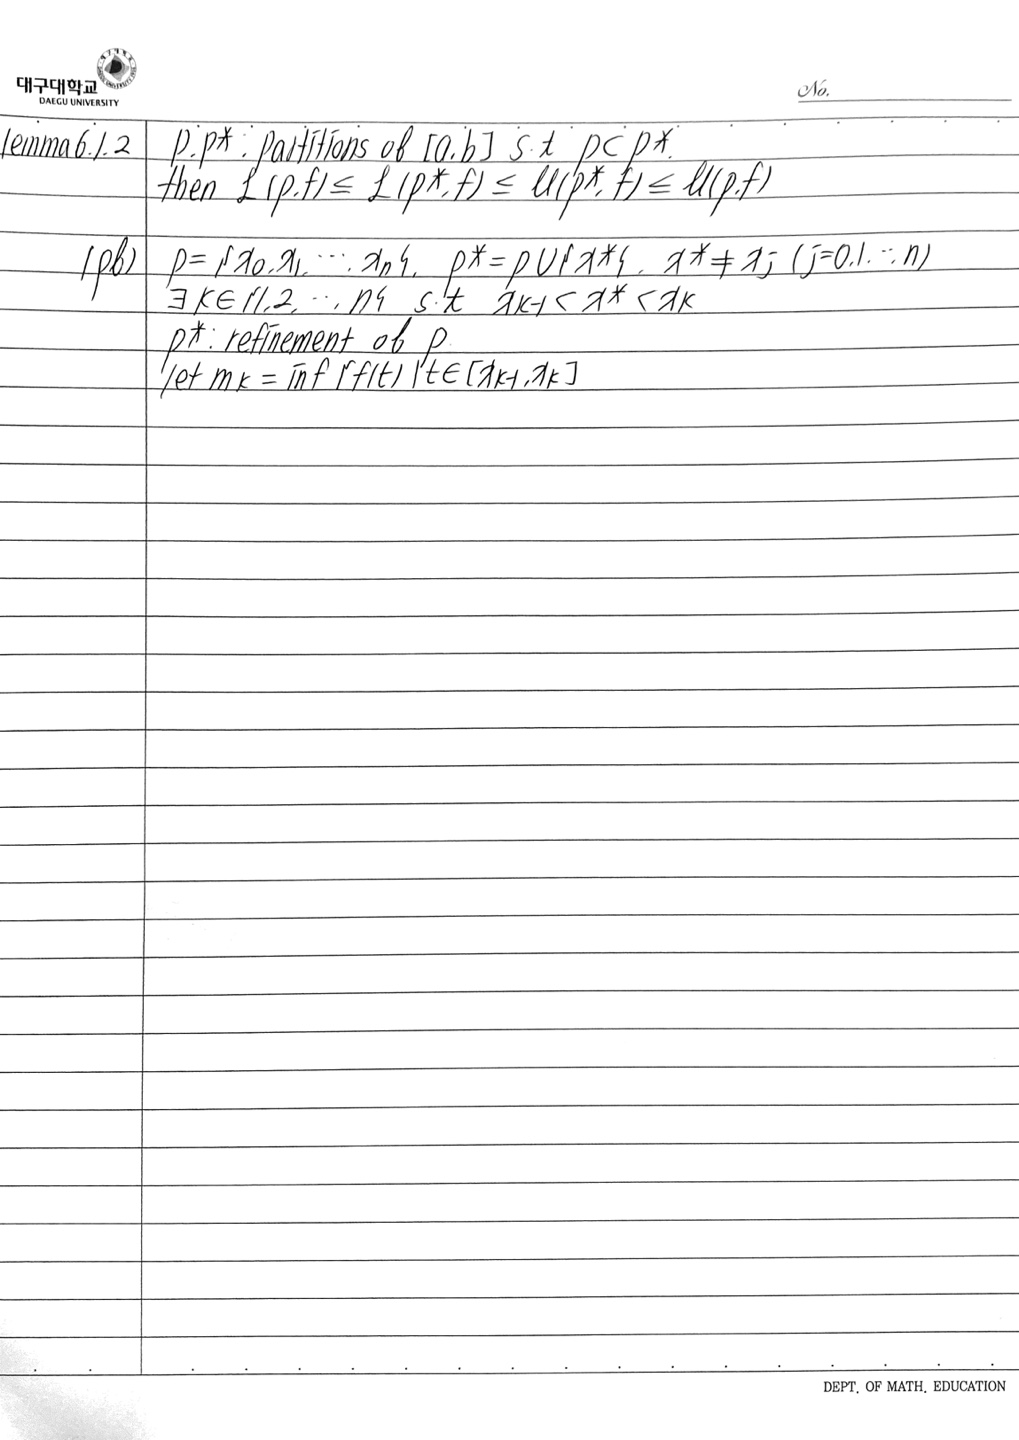 대구대학교
DAEGU UNIVERSITY
No.
lemma 6.1.2 p.p* : partitions of [a.b] s.t p⊂p*.
then L(p.f) ≤ L(p*.f) ≤ U(p*.f) ≤ U(p.f)
(pf) p={x₀.x₁. ⋯ .xₙ}. p*=p∪{x*}. x*≠xⱼ (j=0.1.⋯n)
∃k∈{1.2. ⋯. n} s.t xₖ₋₁<x*<xₖ
p* : refinement of p.
let mₖ = inf {f(t) | t∈[xₖ₋₁.xₖ]
DEPT. OF MATH. EDUCATION